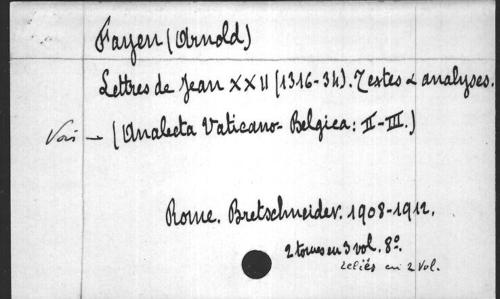 Fayen (Arnold)
Lettres de Jean XXII (1316-34). Textes & analyses.
Vois — (Analecta Vaticano-Belgica: II-III.)
Rome. Bretschneider. 1908-1912.
2 tomes en 3 vol. 8º.
reliés en 2 vol.